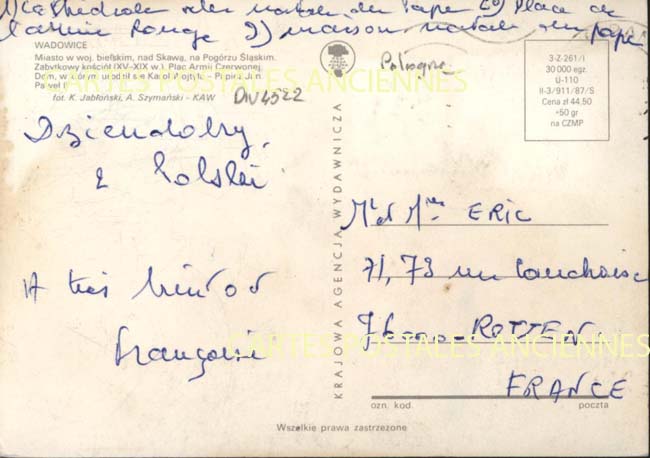 1) Cathédrale ville natale du Pape 2) Place de
l'armée Rouge 3) maison natale du pape
WADOWICE
Miasto w woj. bielskim, nad Skawą, na Pogórzu Śląskim.
Zabytkowy kościół (XV–XIX w.). Plac Armii Czerwonej.
Dom, w którym urodził się Karol Wojtyła - Papież Jan
Paweł II
fot. K. Jabłoński, A. Szymański - KAW
DIV4322
Pologne
3-Z-261/I
30 000 egz.
U-110
II-3/911/87/S
Cena zł 44,50
+50 gr
na CZMP
CARTES POSTALES ANCIENNES
Dziendobry
z Polski
A très
KRAJOWA AGENCJA WYDAWNICZA
Mr et Mme ERIC
71, 73 rue
76000 - ROUEN
FRANCE
CARTES POSTALES ANCIENNES
ozn. kod. poczta
Wszelkie prawa zastrzeżone